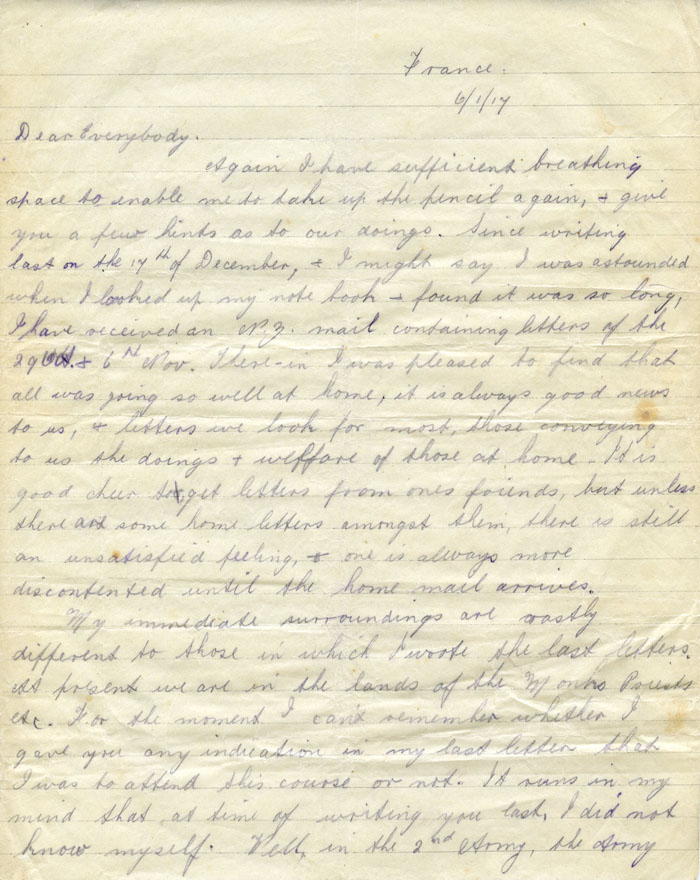 France.
6/1/17
Dear Everybody.
Again I have sufficient breathing
space to enable me to take up the pencil again, + give
you a few hints as to our doings. Since writing
last on the 17th of December, + I might say I was astounded
when I looked up my note book + found it was so long,
I have received an N.Z. mail containing letters of the
29 Oct. + 6th Nov. There-in I was pleased to find that
all was going so well at home, it is always good news
to us, + letters we look for most, those conveying
to us the doings + welffare of those at home. It is
good cheer to get letters from ones friends, but unless
there are some home letters amongst them, there is still
an unsatisfied feeling, + one is always more
discontented until the home mail arrives.
My immediate surroundings are vastly
different to those in which I wrote the last letters.
At present we are in the lands of the Monks Priests
etc. For the moment I can't remember whether I
gave you any indication in my last letter that
I was to attend this course or not. It runs in my
mind that at time of writing you last, I did not
know myself. Well, in the 2nd Army, the Army